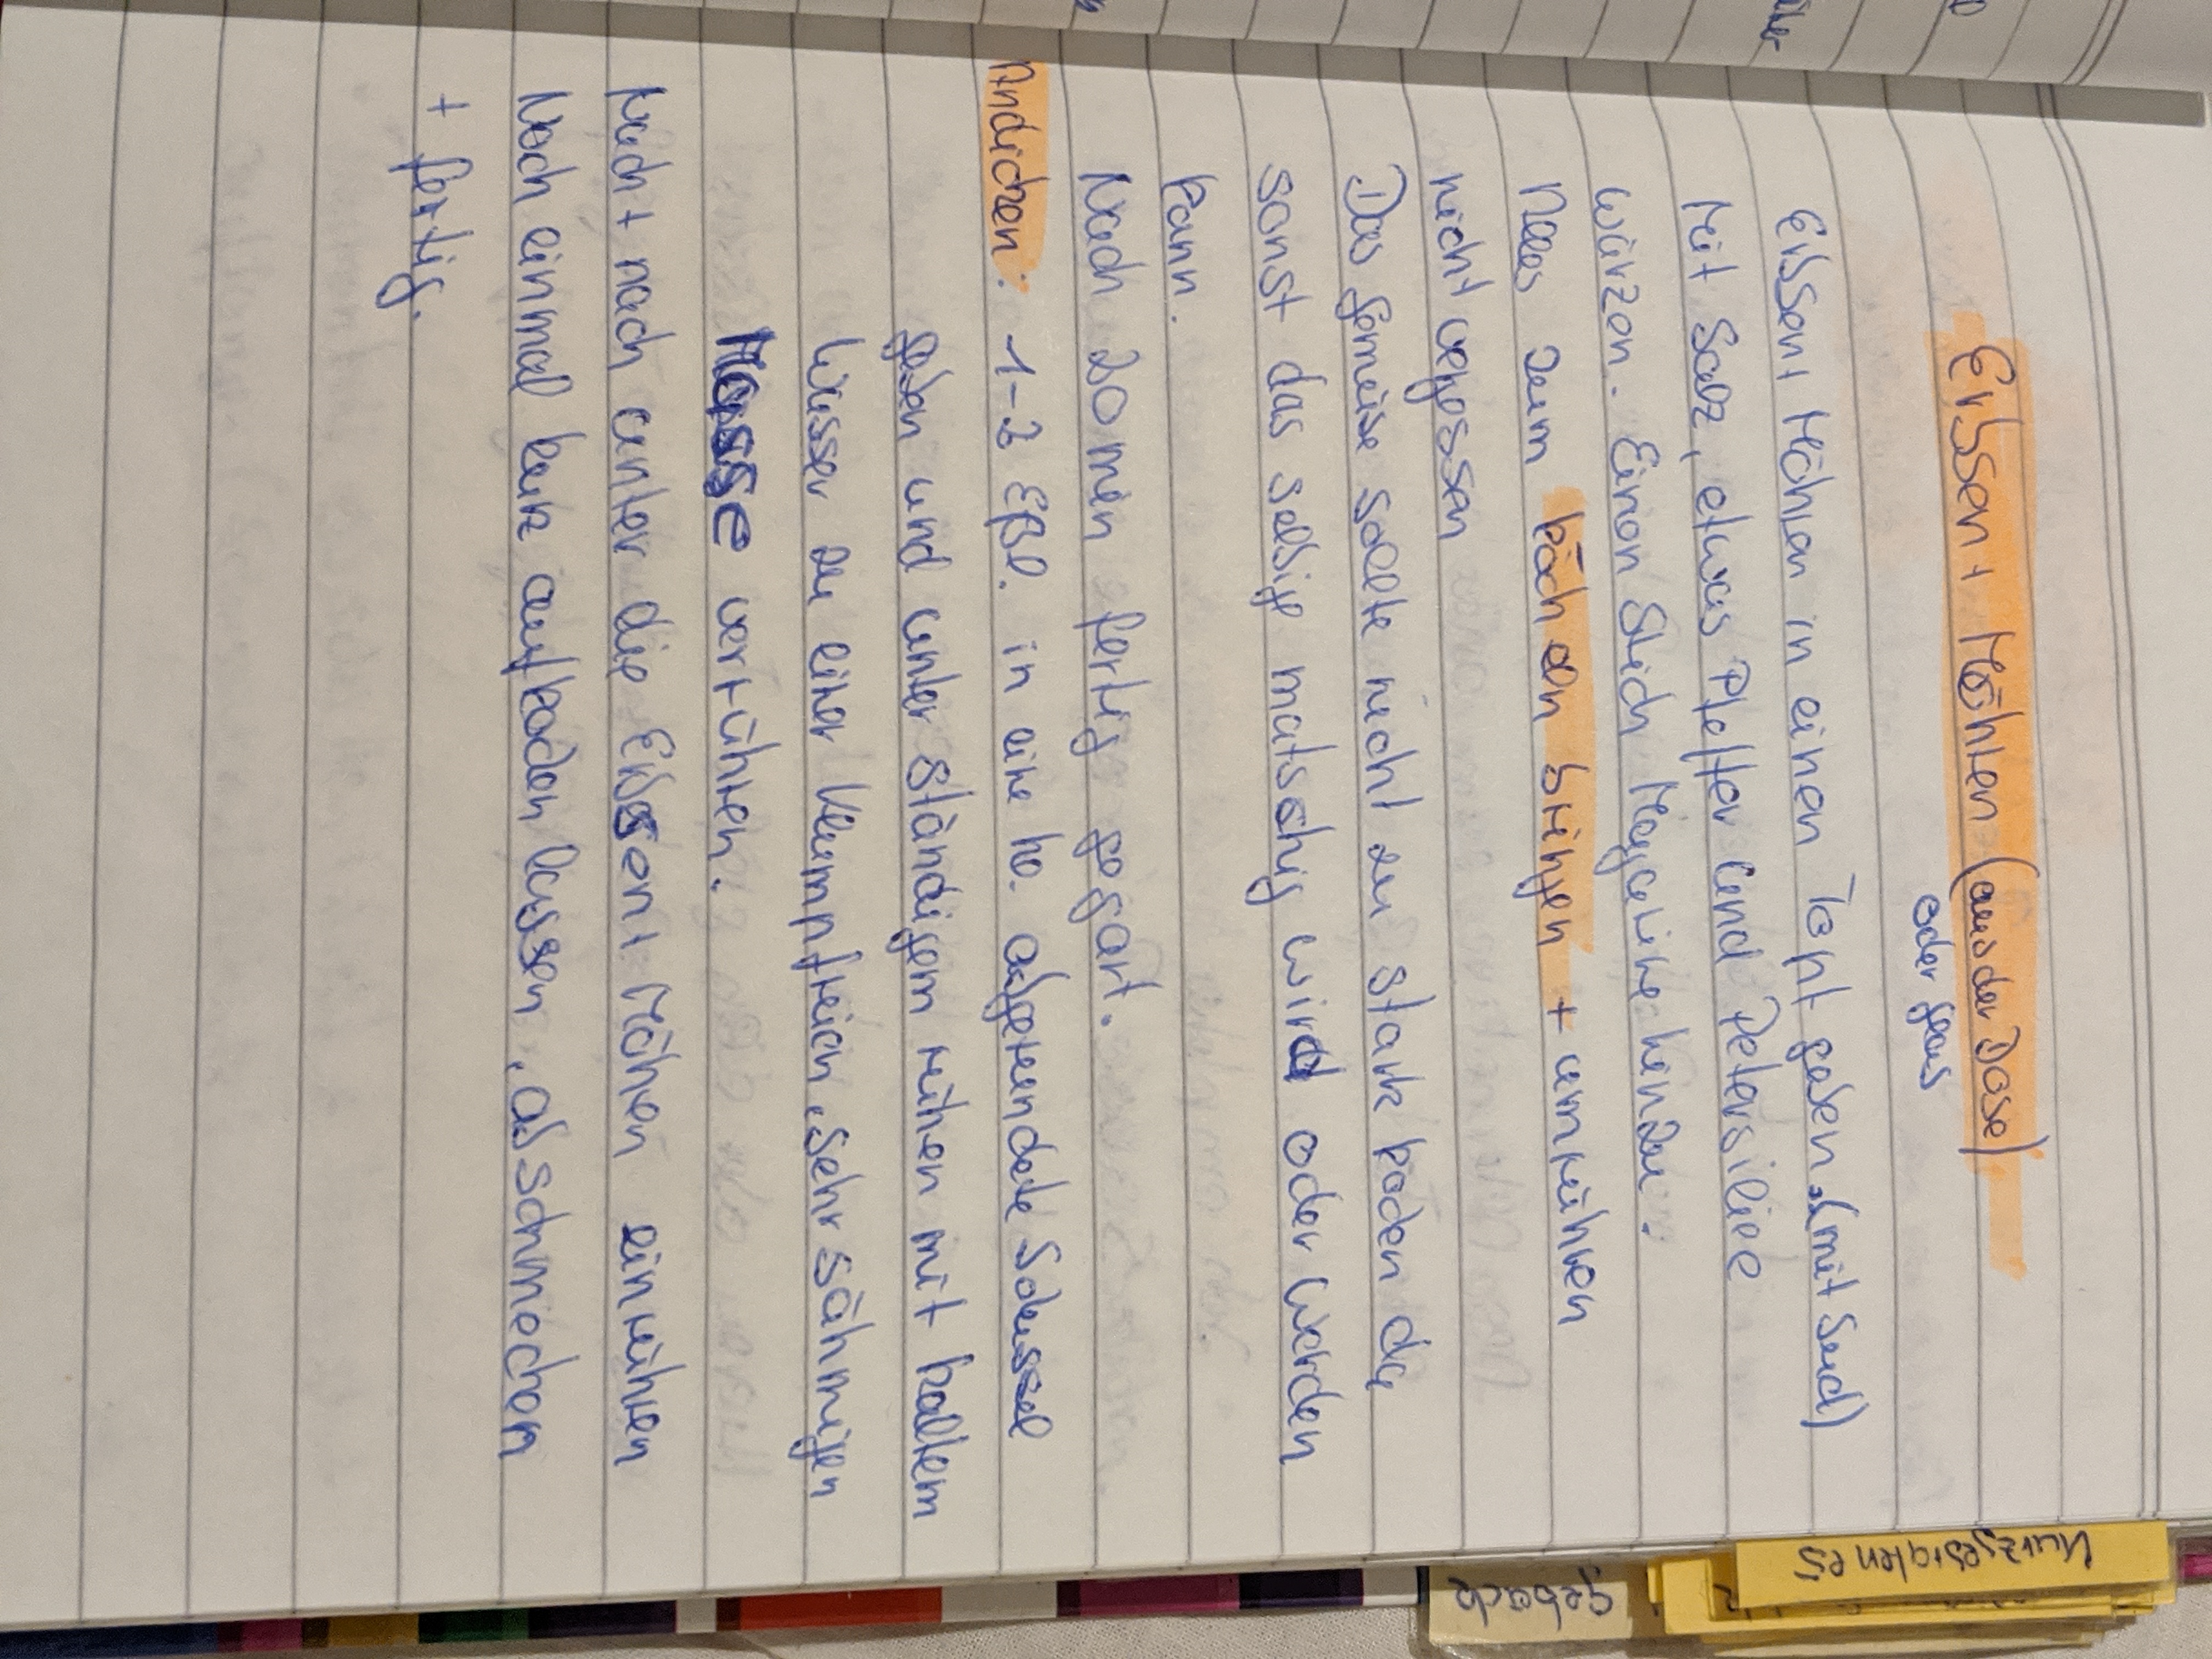 Erbsen + Möhren (aus der Dose)
oder Glas
Erbsen + Möhren in einen Topf geben. (mit Sud)
Mit Salz, etwas Pfeffer und Petersiliee
würzen. Einen Stich Magarine hinzu.
Alles zum köcheln bringen + umrühren
nicht vergessen
Das Gemüse sollte nicht zu stark kochen da
sonst das selbige matschig wird oder werden
kann.
Nach 20 min fertig gegart.
Andicken: 1-2 Eßl. in eine ho. abgerundete Schüssel
geben und unter ständigem rühren mit kaltem
Wasser zu einer klumpfreien, sehr sähmigen
Masse verrühren.
Nach + nach unter die Erbsen + Möhren einrühren
Noch einmal kurz aufkochen lassen, abschmecken
+ fertig.
Kurzgebratenes
Gebäck